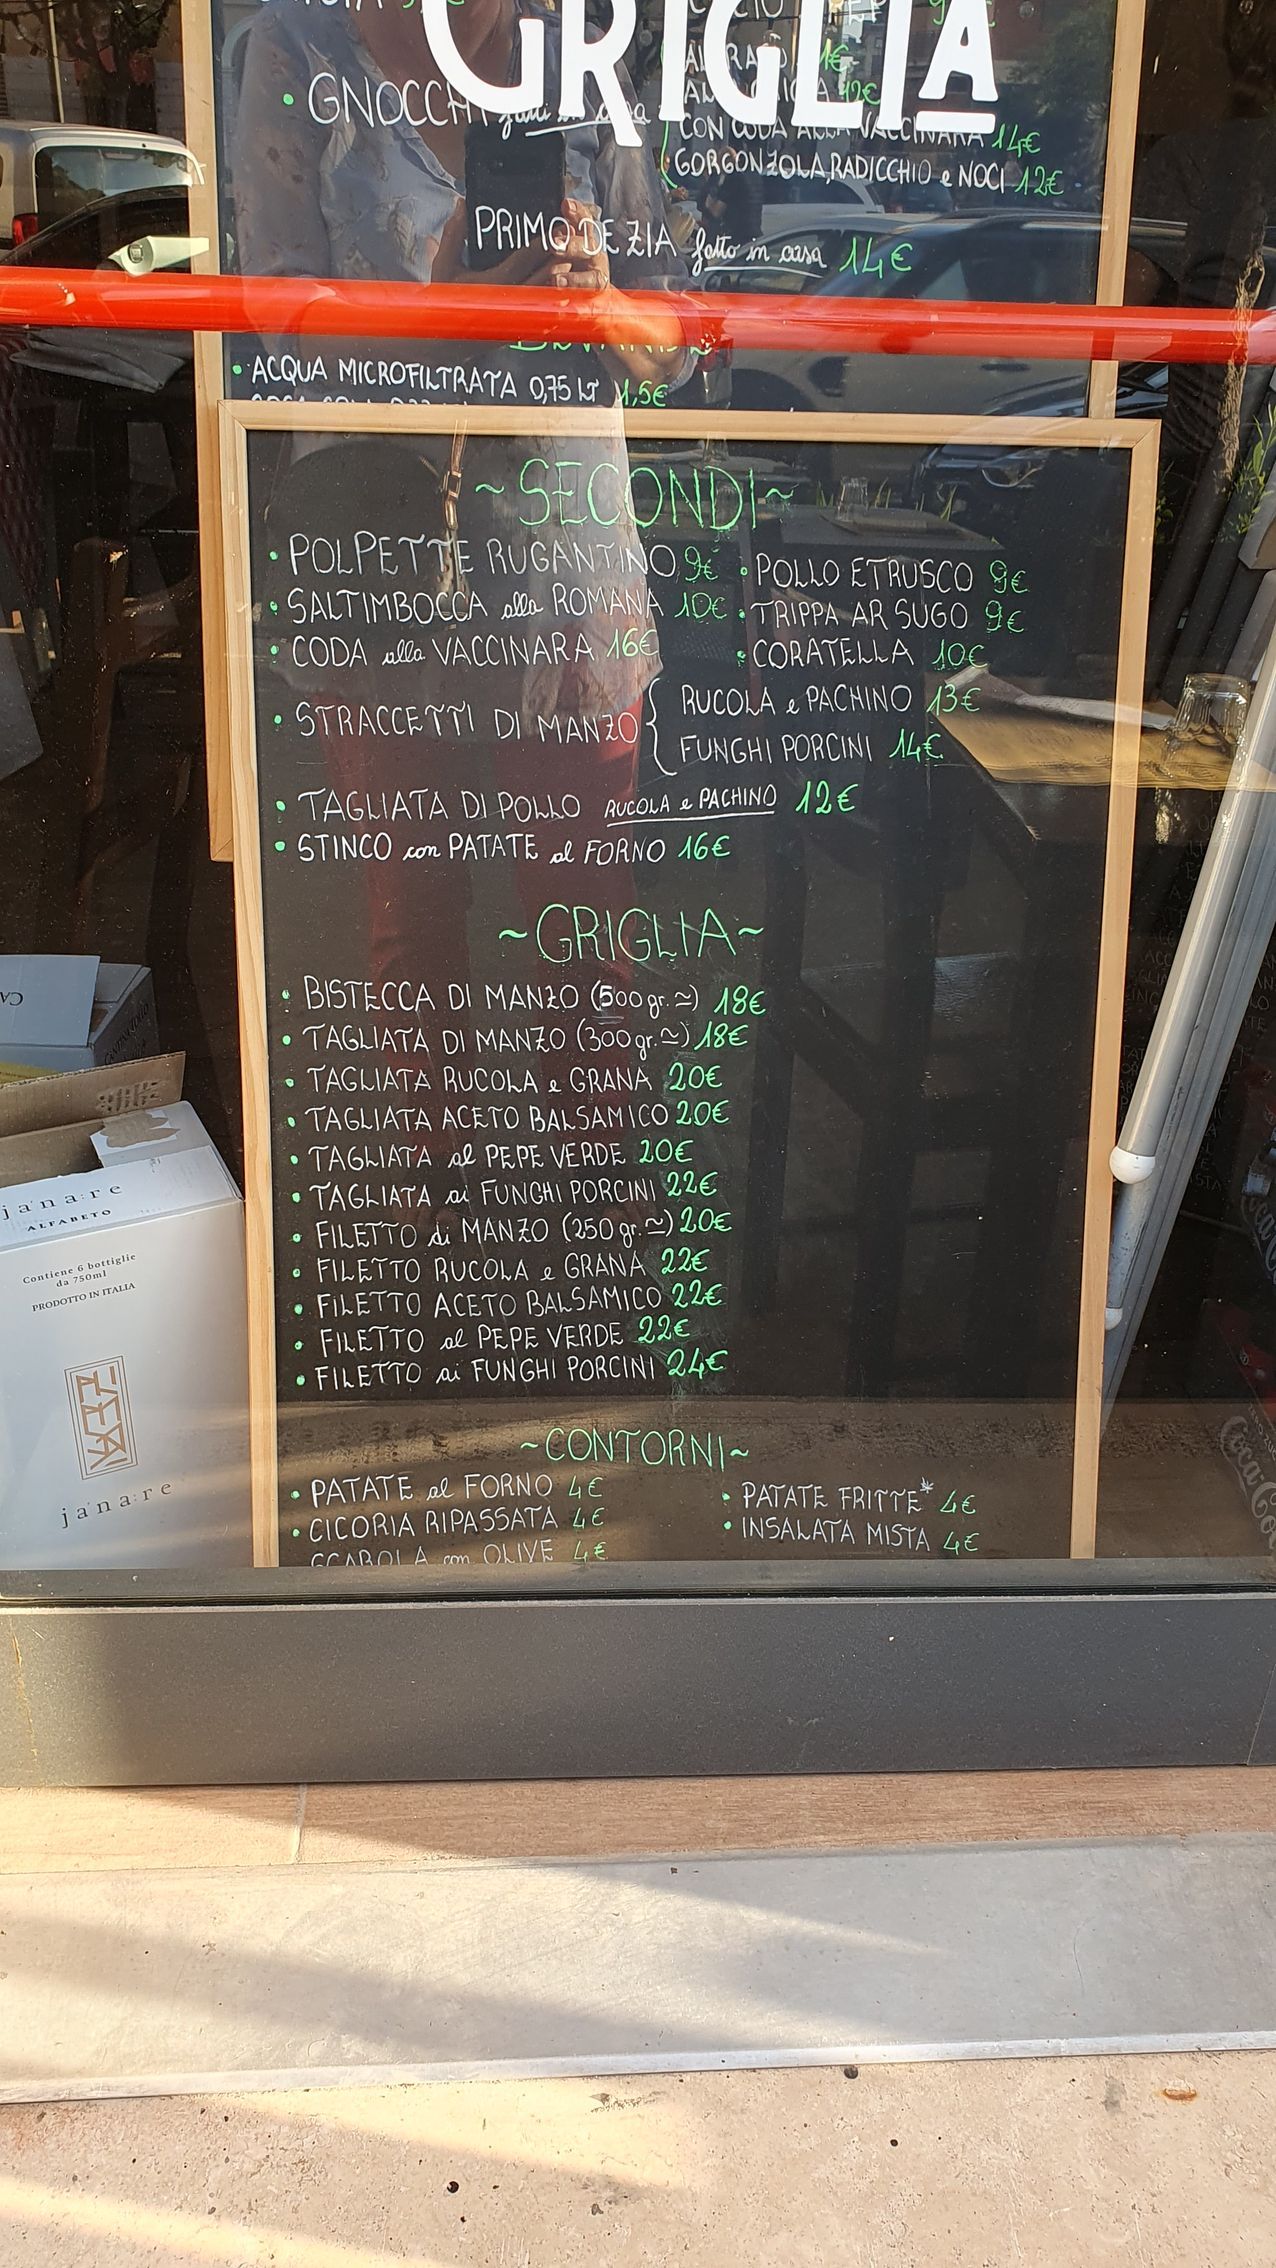 GRIGLIA
• GNOCCHI fatti in casa
CON CODA ALLA VACCINARA 14€
GORGONZOLA, RADICCHIO e NOCI 12€
PRIMO DE ZIA fatto in casa 14€
• ACQUA MICROFILTRATA 0,75 LT 1,5€
~SECONDI~
• POLPETTE RUGANTINO 9€ • POLLO ETRUSCO 9€
• SALTIMBOCCA alla ROMANA 10€ • TRIPPA AR SUGO 9€
• CODA alla VACCINARA 16€ • CORATELLA 10€
• STRACCETTI DI MANZO { RUCOLA e PACHINO 13€
FUNGHI PORCINI 14€
• TAGLIATA DI POLLO RUCOLA e PACHINO 12€
• STINCO con PATATE al FORNO 16€
~GRIGLIA~
• BISTECCA DI MANZO (500gr.≃) 18€
• TAGLIATA DI MANZO (300gr.≃) 18€
• TAGLIATA RUCOLA e GRANA 20€
• TAGLIATA ACETO BALSAMICO 20€
• TAGLIATA al PEPE VERDE 20€
• TAGLIATA ai FUNGHI PORCINI 22€
• FILETTO di MANZO (250gr.≃) 20€
• FILETTO RUCOLA e GRANA 22€
• FILETTO ACETO BALSAMICO 22€
• FILETTO al PEPE VERDE 22€
• FILETTO ai FUNGHI PORCINI 24€
~CONTORNI~
• PATATE al FORNO 4€ • PATATE FRITTE* 4€
• CICORIA RIPASSATA 4€ • INSALATA MISTA 4€
SCAROLA con OLIVE 4€
ja'na:re
ALFABETO
Contiene 6 bottiglie
da 750ml
PRODOTTO IN ITALIA
ja'na:re
Coca-Cola